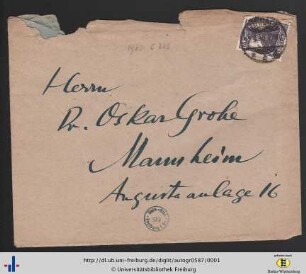 Herrn
Dr. Oskar Grohe
Mannheim
Augusta anlage 16
http://dl.ub.uni-freiburg.de/diglit/autogr0587/0001
© Universitätsbibliothek Freiburg